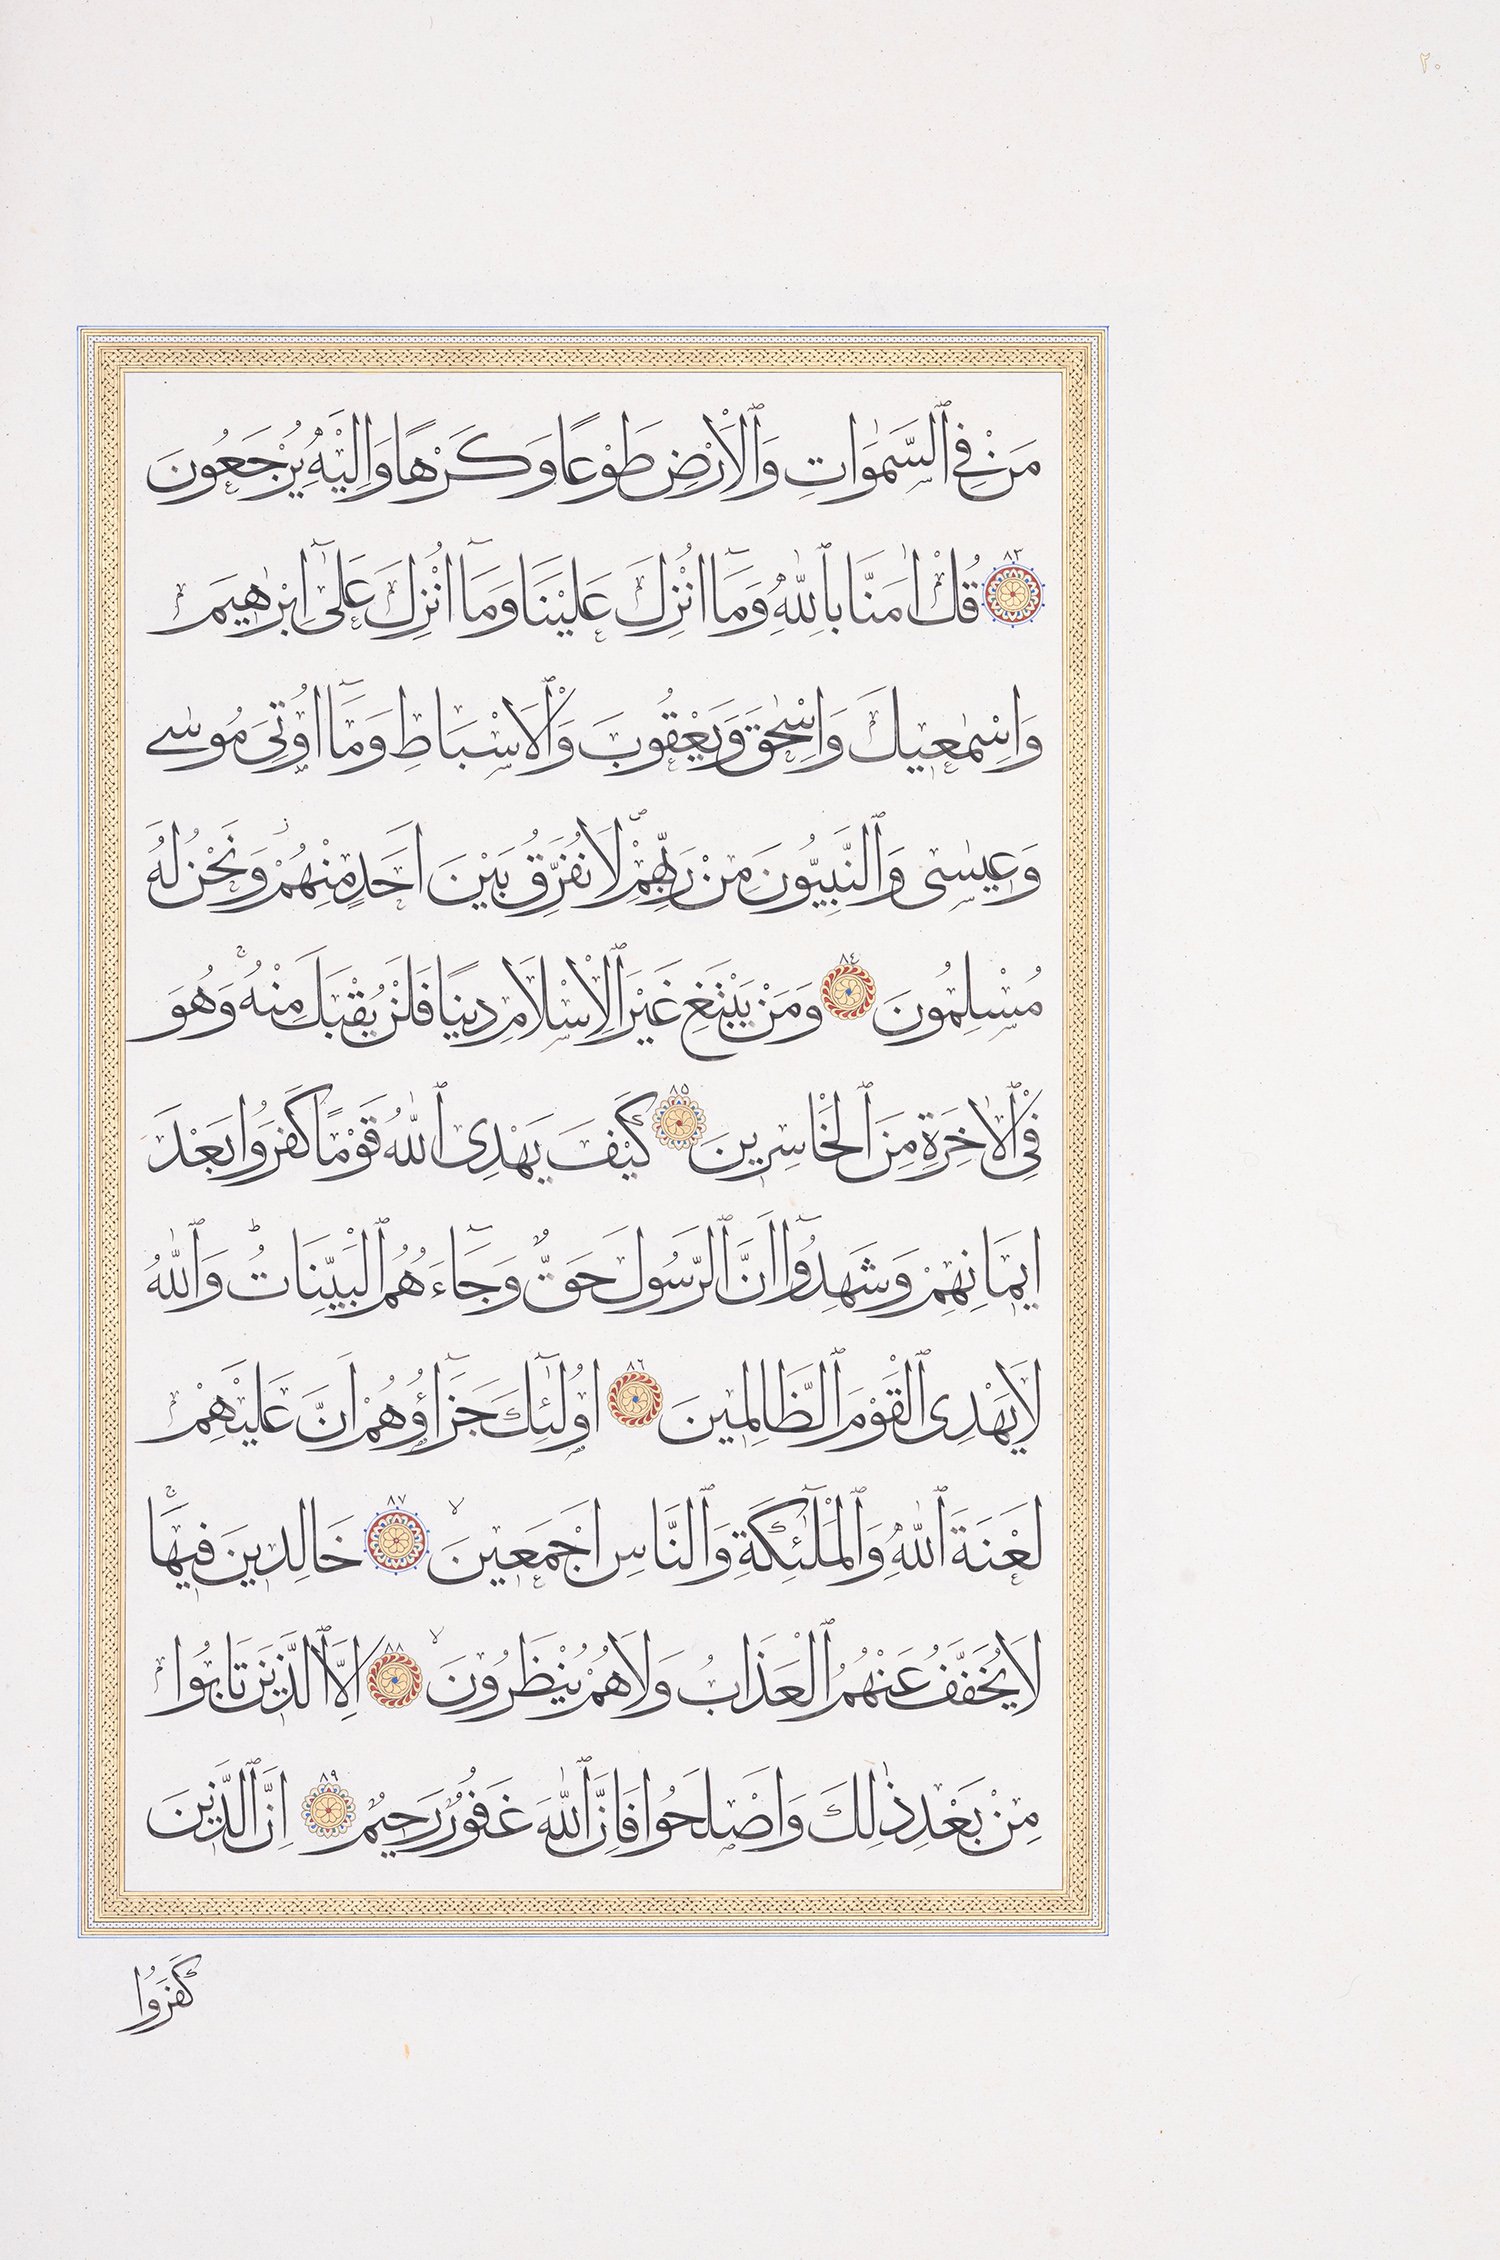 ٢٠
مَنْ فِي ٱلسَّمٰوَاتِ وَٱلْاَرْضِ طَوْعًا وَكَرْهًا وَاِلَيْهِ يُرْجَعُونَ
٨٣ قُلْ اٰمَنَّا بِٱللّٰهِ وَمَٓا اُنْزِلَ عَلَيْنَا وَمَٓا اُنْزِلَ عَلٰٓى اِبْرٰهِيمَ
وَاِسْمٰعِيلَ وَاِسْحٰقَ وَيَعْقُوبَ وَٱلْاَسْبَاطِ وَمَٓا اُو۫تِيَ مُوسٰى
وَعِيسٰى وَٱلنَّبِيُّونَ مِنْ رَبِّهِمْۖ لَا نُفَرِّقُ بَيْنَ اَحَدٍ مِنْهُمْۘ وَنَحْنُ لَهُ
مُسْلِمُونَ ٨٤ وَمَنْ يَبْتَغِ غَيْرَ ٱلْاِسْلَامِ دِينًا فَلَنْ يُقْبَلَ مِنْهُۚ وَهُوَ
فِي ٱلْاٰخِرَةِ مِنَ ٱلْخَاسِرِينَ ٨٥ كَيْفَ يَهْدِي ٱللّٰهُ قَوْمًا كَفَرُوا بَعْدَ
اِيمَانِهِمْ وَشَهِدُٓوا اَنَّ ٱلرَّسُولَ حَقٌّ وَجَٓاءَهُمُ ٱلْبَيِّنَاتُۜ وَٱللّٰهُ
لَا يَهْدِي ٱلْقَوْمَ ٱلظَّالِمِينَ ٨٦ اُو۬لٰٓئِكَ جَزَٓاؤُ۬هُمْ اَنَّ عَلَيْهِمْ
لَعْنَةَ ٱللّٰهِ وَٱلْمَلٰٓئِكَةِ وَٱلنَّاسِ اَجْمَعِينَۙ ٨٧ خَالِدِينَ فِيهَاۚ
لَا يُخَفَّفُ عَنْهُمُ ٱلْعَذَابُ وَلَا هُمْ يُنْظَرُونَۙ ٨٨ اِلَّا ٱلَّذِينَ تَابُوا
مِنْ بَعْدِ ذٰلِكَ وَاَصْلَحُوا فَاِنَّ ٱللّٰهَ غَفُورٌ رَحِيمٌ ٨٩ اِنَّ ٱلَّذِينَ
كَفَرُوا